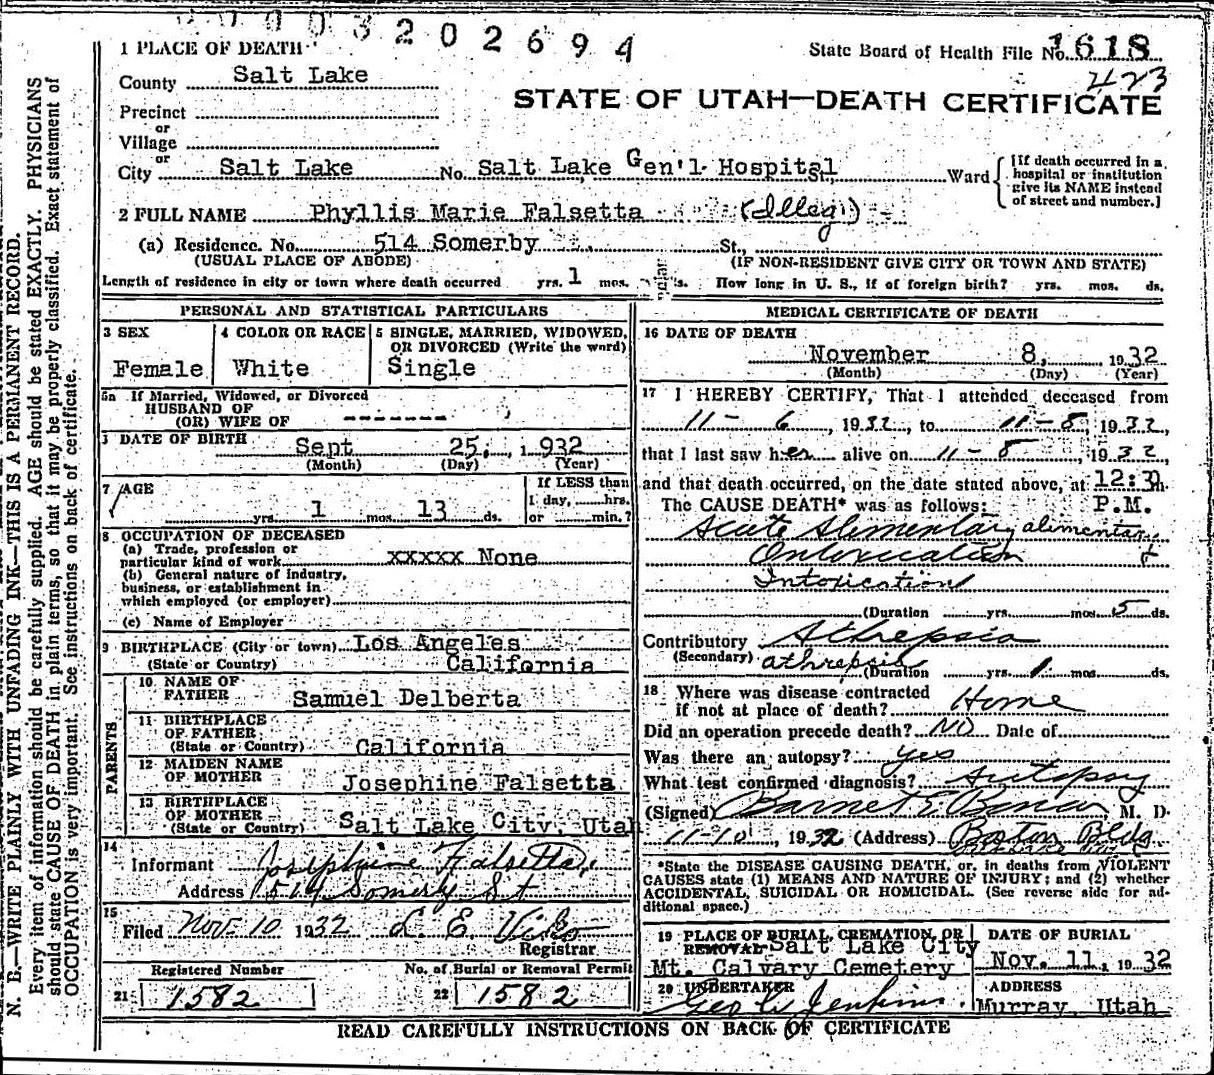 0003202694
1 PLACE OF DEATH
State Board of Health File No. 1618
County Salt Lake
423
STATE OF UTAH—DEATH CERTIFICATE
Precinct
or
Village
or
City Salt Lake No. Salt Lake Gen'l Hospital St., Ward
[If death occurred in a
hospital or institution
give its NAME instead
of street and number.]
2 FULL NAME Phyllis Marie Falsetta (Illeg.)
(a) Residence. No. 514 Somerby St.,
(USUAL PLACE OF ABODE) (IF NON-RESIDENT GIVE CITY OR TOWN AND STATE)
Length of residence in city or town where death occurred yrs. 1 mos. ds. How long in U. S., if of foreign birth? yrs. mos. ds.
PERSONAL AND STATISTICAL PARTICULARS
3 SEX
Female
4 COLOR OR RACE
White
5 SINGLE, MARRIED, WIDOWED,
OR DIVORCED (Write the word)
Single
5a If Married, Widowed, or Divorced
HUSBAND OF
(OR) WIFE OF -------
DATE OF BIRTH
Sept 25, 1932
(Month) (Day) (Year)
7 AGE
yrs. 1 mos. 13 ds.
If LESS than
1 day, hrs.
or min.?
8 OCCUPATION OF DECEASED
(a) Trade, profession or
particular kind of work xxxxx None
(b) General nature of industry,
business, or establishment in
which employed (or employer)
(c) Name of Employer
9 BIRTHPLACE (City or town) Los Angeles
(State or Country) California
PARENTS
10 NAME OF
FATHER Samuel Delberta
11 BIRTHPLACE
OF FATHER
(State or Country) California
12 MAIDEN NAME
OF MOTHER Josephine Falsetta
13 BIRTHPLACE
OF MOTHER
(State or Country) Salt Lake City, Utah
14
Informant Josephine Falsetta,
Address 514 Somerby St
15
Filed Nov. 10 1932 L. E. Viko
Registrar
Registered Number
21 1582
No. of Burial or Removal Permit
22 1582
MEDICAL CERTIFICATE OF DEATH
16 DATE OF DEATH
November 8, 1932
(Month) (Day) (Year)
17 I HEREBY CERTIFY, That I attended deceased from
11-6, 1932, to 11-8, 1932,
that I last saw her alive on 11-8, 1932,
and that death occurred, on the date stated above, at 12:30 m.
The CAUSE DEATH* was as follows: P.M.
Acute Alimentary alimentary
Intoxication +
Intoxication
(Duration yrs. mos. 5 ds.
Contributory Athrepsia
(Secondary) athrepsia
(Duration yrs. 1 mos. ds.
18 Where was disease contracted
if not at place of death? Home
Did an operation precede death? NO Date of
Was there an autopsy? yes
What test confirmed diagnosis? Autopsy
(Signed) Barnet E. M. D.
11-10, 1932 (Address) Boston Bldg
*State the DISEASE CAUSING DEATH, or, in deaths from VIOLENT
CAUSES state (1) MEANS AND NATURE OF INJURY; and (2) whether
ACCIDENTAL, SUICIDAL OR HOMICIDAL. (See reverse side for ad-
ditional space.)
19 PLACE OF BURIAL, CREMATION, OR
REMOVAL Salt Lake City
Mt. Calvary Cemetery
DATE OF BURIAL
Nov. 11, 1932
20 UNDERTAKER
Geo C Jenkins.
ADDRESS
Murray, Utah
READ CAREFULLY INSTRUCTIONS ON BACK OF CERTIFICATE
N. B.—WRITE PLAINLY WITH UNFADING INK—THIS IS A PERMANENT RECORD.
Every item of information should be carefully supplied. AGE should be stated EXACTLY. PHYSICIANS
should state CAUSE OF DEATH in plain terms, so that it may be properly classified. Exact statement of
OCCUPATION is very important. See instructions on back of certificate.